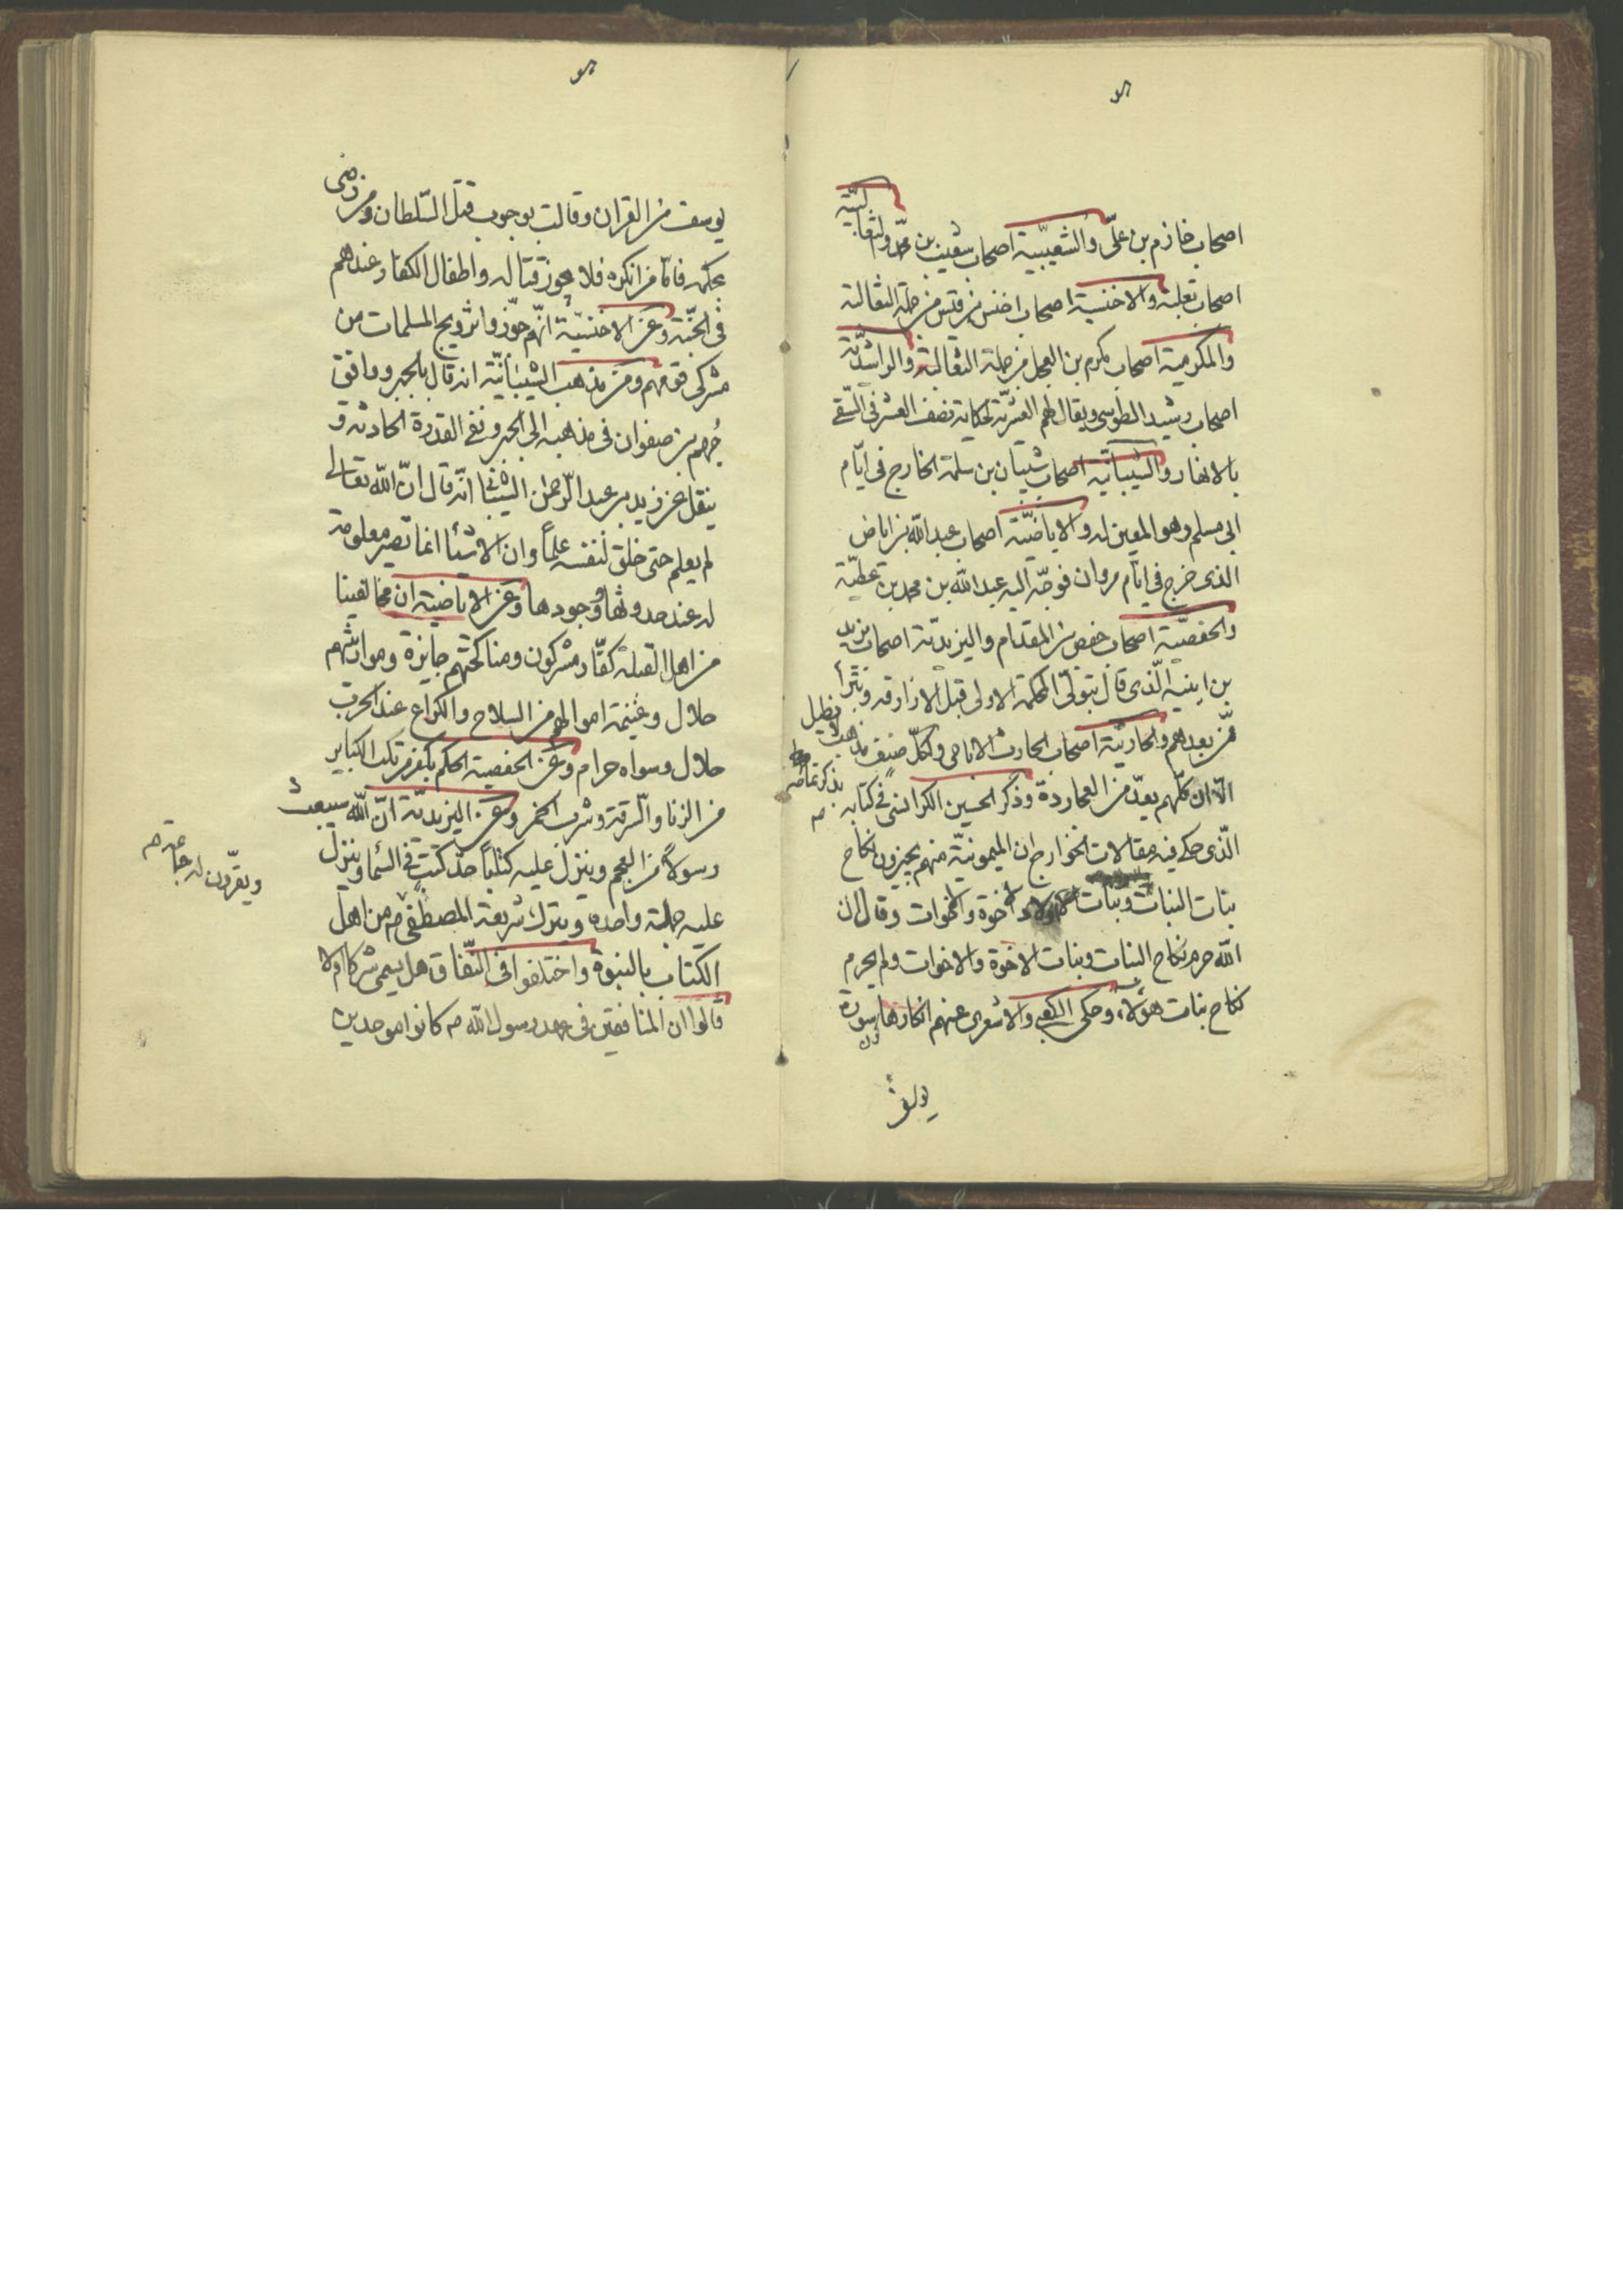 اصحاب خازم بن علّى والشعيبّية اصحاب شعيب بن محمّد والثعالبيّة
اصحاب ثعلبة والاخنسية اصحاب اخنس بن قيس من جملة الثعالبة
والمكرمية اصحاب مكرم بن العجل من جملة الثعالبة والراشديّة
اصحاب رشيد الطوسى ويقال لهم العشريّة لحكاية نصف العشر فى السّقى
بالانهار والشيبانيّة اصحاب شيبان بن سلمة الخارج فى ايّام
ابى مسلم وهو المعين له والاباضيّة اصحاب عبد الله بن اباض
الذى خرج فى ايّام مروان فوجّه اليه عبد الله بن محمد بن عطيّة
والحفصيّة اصحاب حفص بن المقدام واليزيديّة اصحاب يزيد
بن انيسة الّذى قال بتولّى المحكمة الاولى قبل الازارقه وتبرأ
ممّن بعدهم والحارثيّة اصحاب الحارث الاباضى ولكلّ صنف مذاهب
يطول بذكر تفاصيلها
الّا ان كلّهم يعدّ من العجاردة وذكر الحسين الكرابيسى فى كتابه
الّذى حكى فيه مقالات الخوارج ان الميمونيّة منهم يجيزون نكاح
بنات البنات وبنات اولاد الاخوة والاخوات وقال ان
الله حرم نكاح البنات وبنات الاخوة والاخوات ولم يحرم
نكاح بنات هؤلاء وحكى الكعبى والاشعرى عنهم انكارها سورة
يوسف
يوسف من القران وقالت بوجوب قتل السّلطان ومن رضى
بحكمه فامّا من انكره فلا يجوز قتاله واطفال الكفار عندهم
فى الجنّة وعن الاخنسيّة انّهم جوّزوا تزويج المسلمات من
مشركى قومهم ومن مذهب الشيبانيّة انه قال بالجبر ووافق
جُهم بن صفوان فى مذهبه الى الجبر ونفى القدرة الحادثه و
ينقل عن زيد بن عبد الرّحمن الشيبانى انّه قال انّ الله تعالى
لم يعلم حتى خلق لنفسه علماً وان الاشيا انما تصير معلومة
له عند حدوثها ووجودها وعن الاباضية ان مخالفينا
من اهل القبلة كفّار مشركون ومناكحتهم جايزة ومواريثهم
حلال وغنيمة اموالهم من السلاح والكراع عند الحرب
حلال وسواه حرام وعن الحفصية الحكم بكفر مرتكب الكباير
من الزنا والسّرقة وشرب الخمر وعن اليزيديّة انّ الله سيبعث
رسولاً من العجم وينزل عليه كتاباً قد كتب فى السّما وينزل
عليه جملة واحده ويترك شريعة المصطفى م من اهل
الكتاب بالنبوة واختلفوا فى النّفاق هل يسمى شركا ام لا
قالوا ان المنافقين فى عهد رسول الله م كانوا موحدين
ويقرّون له جماعة م